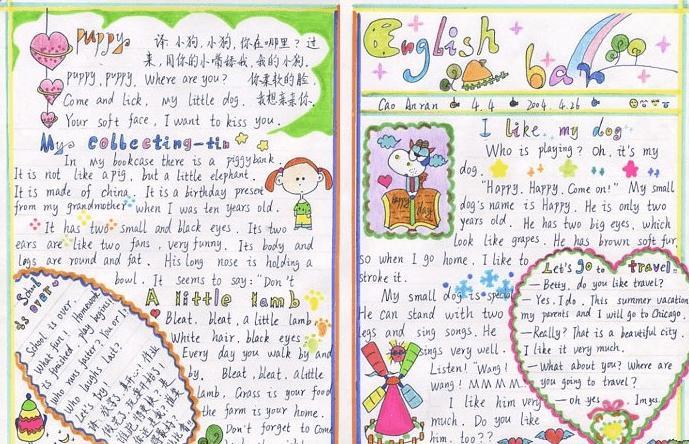 puppy
译：小狗，小狗，你在哪里？过
来，用你的小嘴舔我，我的小狗，
puppy, puppy, Where are you? 你柔软的脸，
Come and lick, my little dog. 我想亲亲你、
Your soft face, I want to kiss you.
My collecting-tin
In my bookcase there is a piggybank.
It is not like a pig, but a little elephant.
It is made of china. It is a birthday present
from my grandmother when I was ten years old.
It has two small and black eyes. Its two
ears are like two fans, very funny. Its body and
legs are round and fat. His long nose is holding a
bowl. It seems to say: "Don't
School
is over
School is over.
What fun! Homework
is finished, play begins!
Who runs faster? You or I?
Who laugh last?
Let's try.
A little lamb
Bleat, bleat, a little lamb
White hair, black eyes
Every day you walk by and
by. Bleat, bleat, a little
lamb, Grass is your food
the farm is your home.
Don't forget to come
English
bar
Cao Anran 4.4 2004.4.26
I like my dog
Who is playing? Oh, it's my
dog.
"Happy. Happy. Come on!" My small
dog's name is Happy. He is only two
years old. He has two big eyes, which
look like grapes. He has brown soft fur,
so when I go home, I like to
stroke it.
My small dog is special
He can stand with two
legs and sing songs. He
sings very well.
Listen! "Wang!
wang! MMMM
I like him very
much. Do you like
him, too?
Happy day
Let's go to travel.
— Betty, do you like travel?
— Yes, I do. This summer vacation
my parents and I will go to Chicago.
— Really? That is a beautiful city.
I like it very much.
— What about you? Where are
you going to travel?
— oh yes